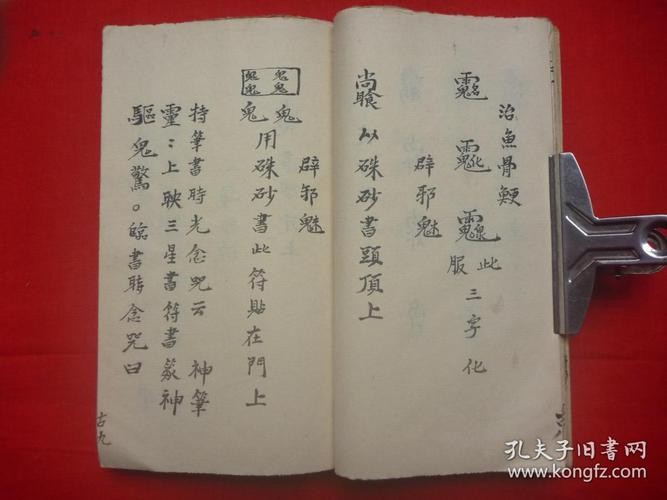 治魚骨鯁
此三字化
服
辟邪魅
以硃砂書頭頂上
辟邪魅
鬼鬼用硃砂書此符貼在門上
持筆書時先念咒云 神筆
靈〻上映三星書符書篆神
驅鬼驚。臨書時念咒曰
古九
孔夫子旧书网
www.kongfz.com